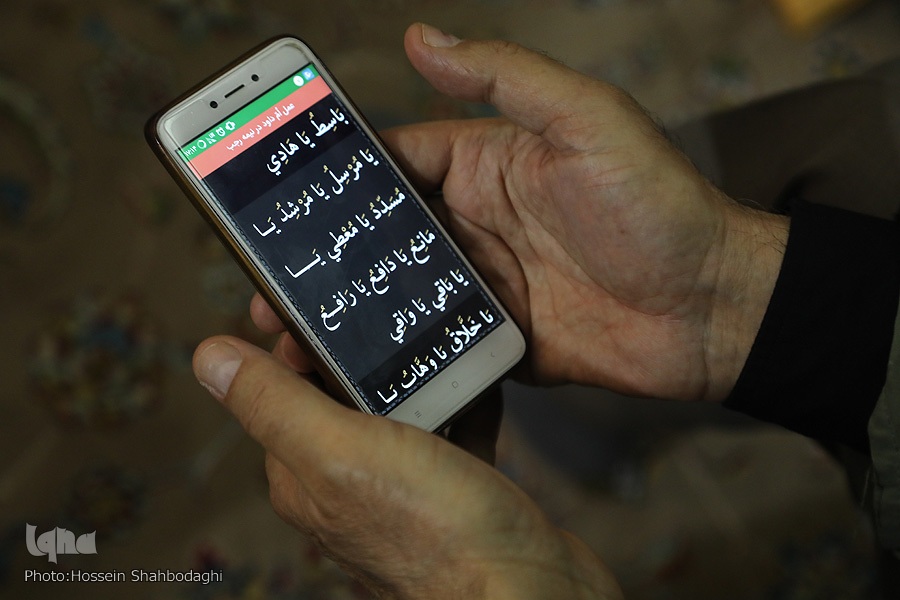 ۱۷:۱۳
عمل ام داود در نیمه رجب
بَاسِطُ يَا هَادِي
يَا مُرْسِلُ يَا مُرْشِدُ يَا
مُسَدِّدُ يَا مُعْطِي يَا
مَانِعُ يَا دَافِعُ يَا رَافِعُ
يَا بَاقِي يَا وَاقِي
يَا خَلَّاقُ يَا وَهَّابُ يَا
iqna
Photo:Hossein Shahbodaghi